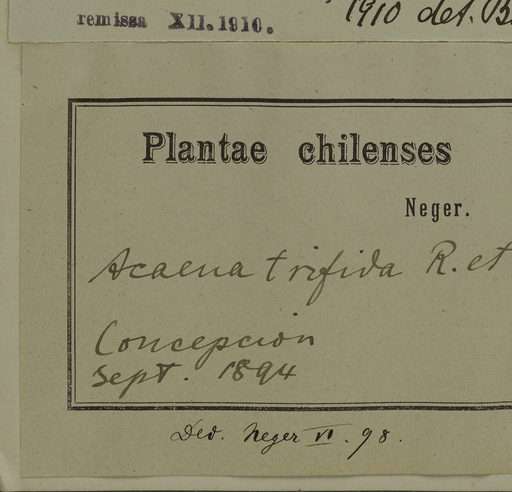 remissa XII.1910.
1910 det. B
Plantae chilenses
Neger.
Acaena trifida R. et
Concepcion
Sept. 1894
Ded. Neger VI. 98.